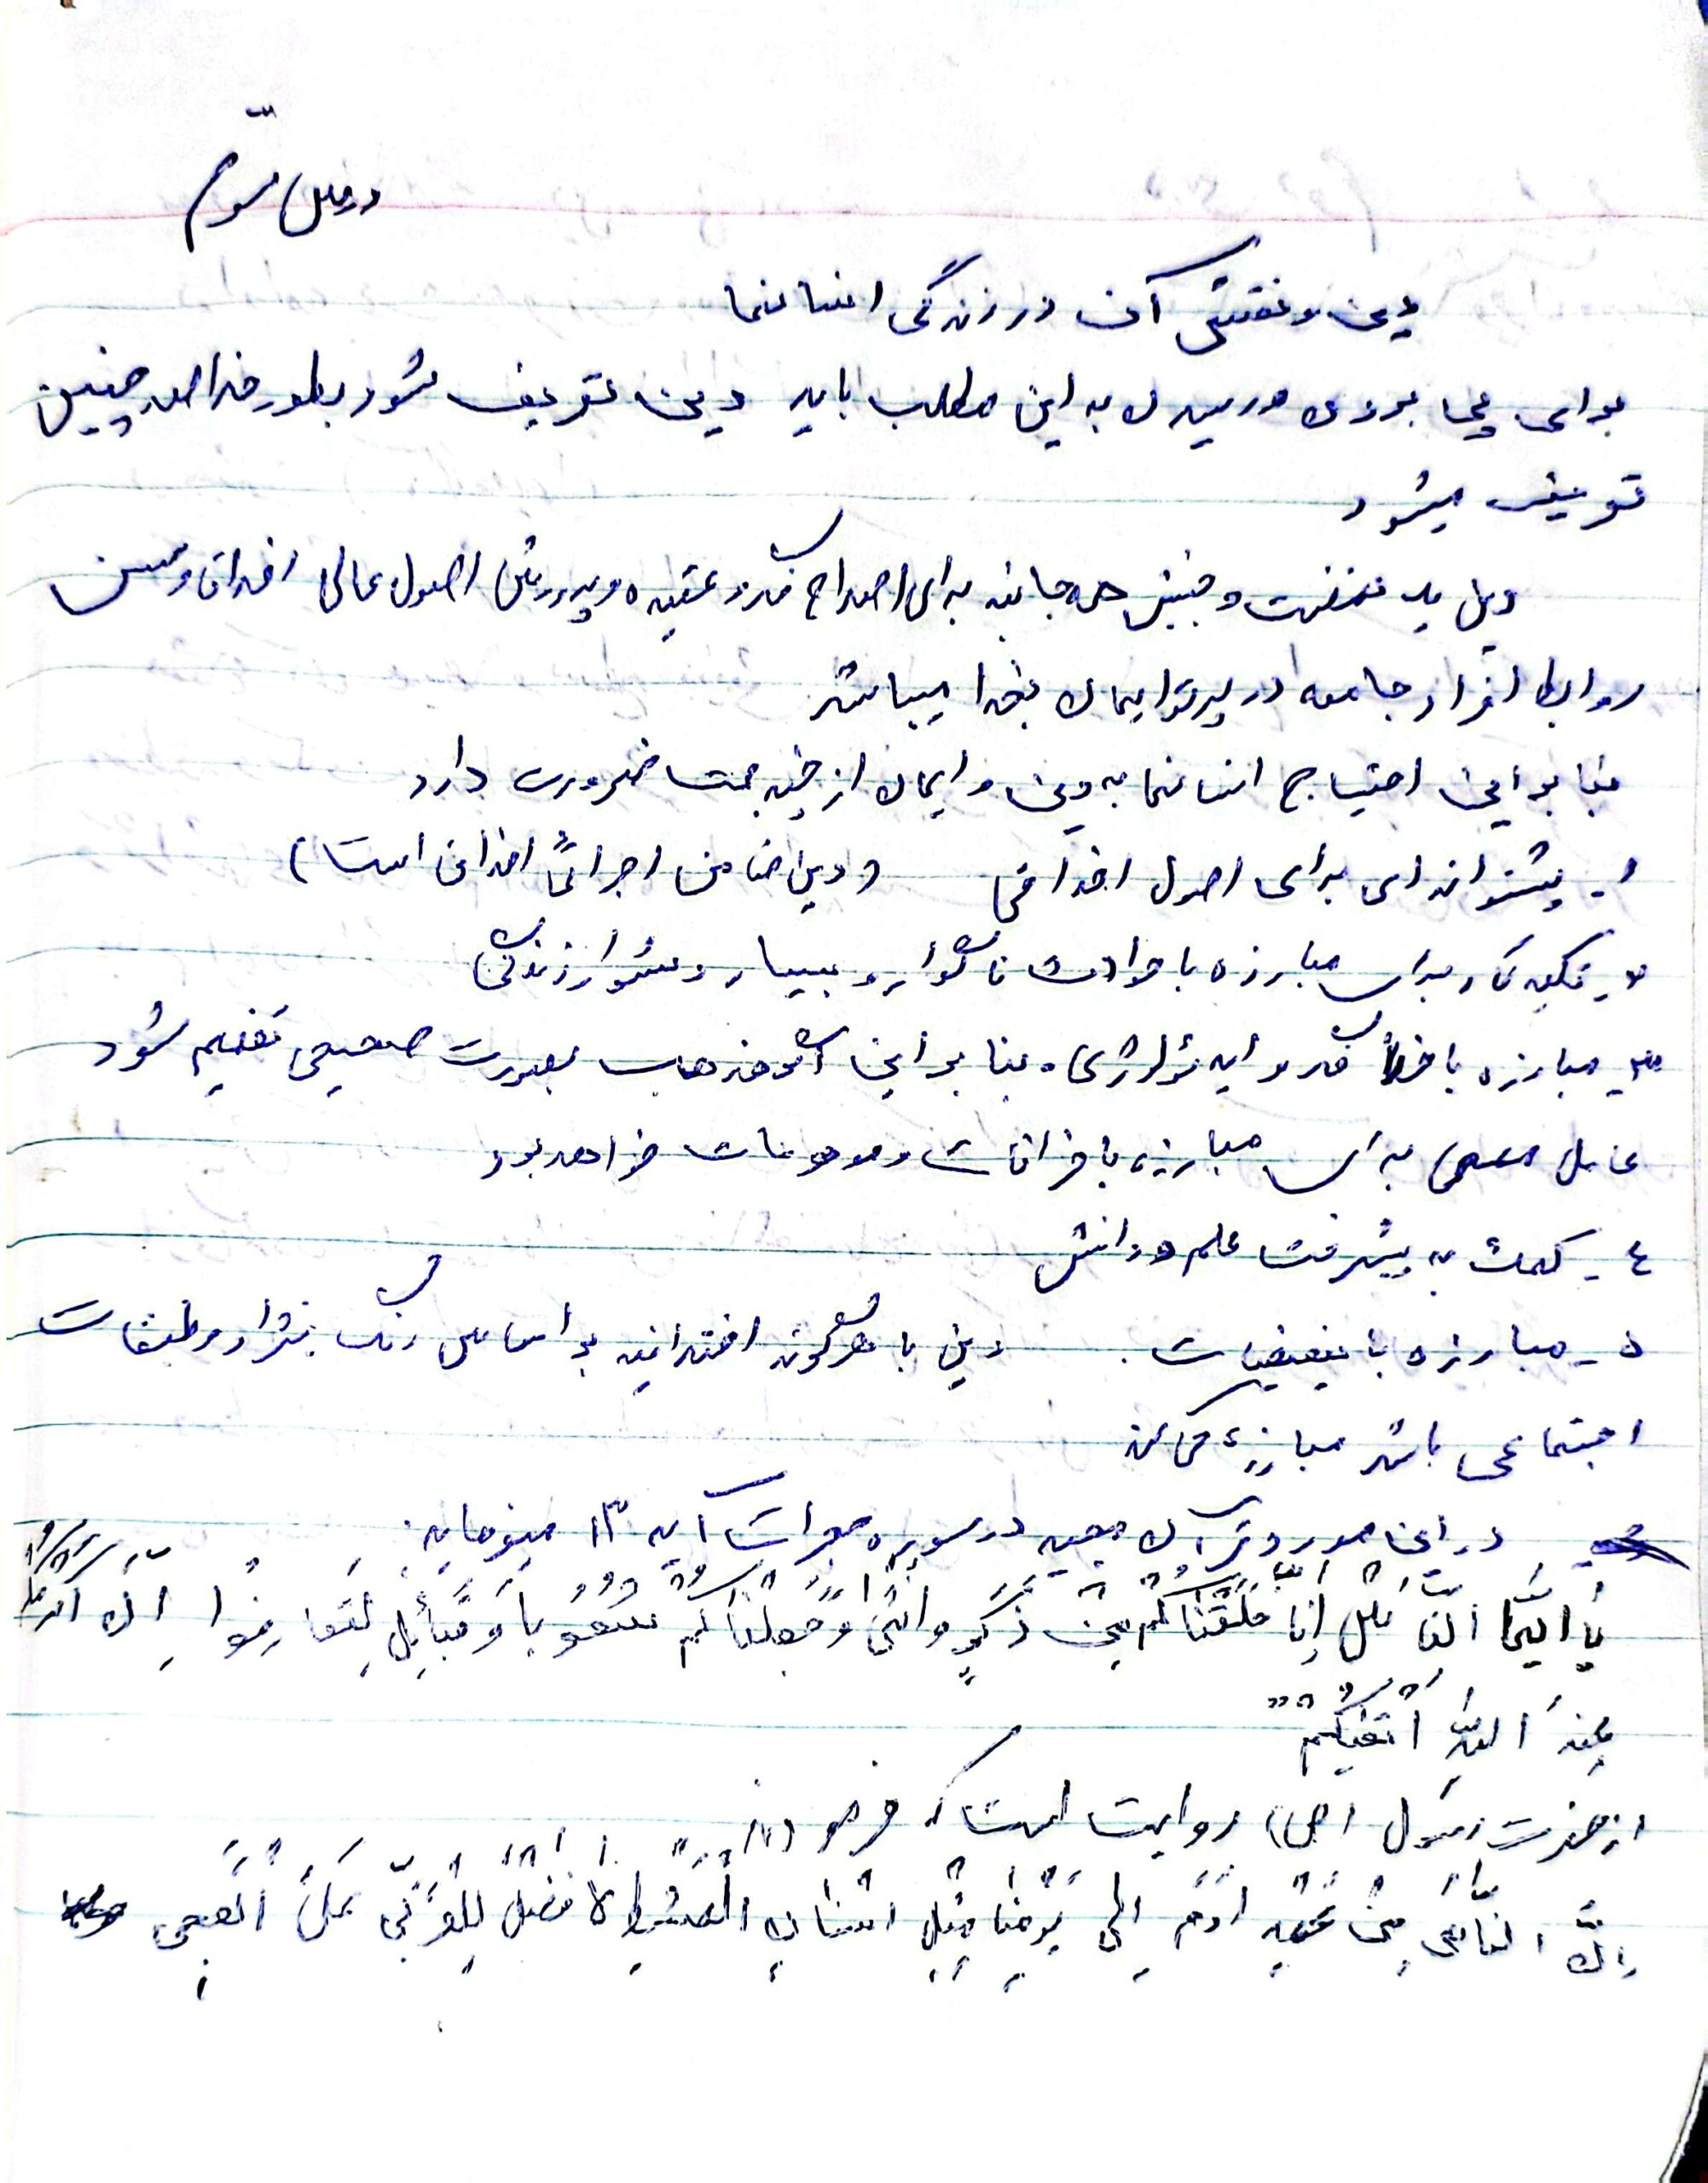 درس سوم
دین و نقش آن در زندگی انسانها
برای پی بردن و رسیدن به این مطلب باید دین تعریف شود بطور خلاصه چنین
تعریف میشود
دین یک نهضت و جنبش همه جانبه برای اصلاح فکر و عقیده و پرورش اصول عالی اخلاق و حسن
روابط افراد جامعه در پرتو ایمان بخدا میباشد
بنابراین احتیاج انسانها به دین و ایمان از چند جهت ضرورت دارد
۱ـ پشتوانه ای برای اصول اخلاقی (دین ضامن اجرائی اخلاق است)
۲ـ تکیه گاه برای مبارزه با حوادث ناگوار و بسیار دشوار زندگی
۳ـ مبارزه با خلأ فکر و ایدئولوژی. بنابراین اگر مذهب بصورت صحیحی تفهیم شود
عامل مهمی برای مبارزه با خرافات و موهومات خواهد بود
٤ـ کمک به پیشرفت علم و دانش
۵ـ مبارزه با تبعیضات. دین با هرگونه امتیازیکه بر اساس رنگ نژاد و طبقات
اجتماعی باشد مبارزه می کند
در این مورد قرآن مجید در سوره حجرات آیه ۱۳ میفرماید:
یا اَیُّهَا النّاسُ اِنّا خَلَقْناکُمْ مِنْ ذَکَرٍ وَ اُنْثی وَ جَعَلْناکُمْ شُعُوباً وَ قَبائِلَ لِتَعارَفُوا اِنَّ اَکْرَمَکُمْ
عِنْدَ اللهِ اَتْقیکُمْ"
از حضرت رسول (ص) روایت است که فرمود
اِنَّ النّاسَ مِنْ عَهْدِ آدَمَ اِلی یَوْمِنا مِثْلُ اَسْنانِ الْمُشْطِ لا فَضْلَ لِلْعَرَبِیِّ عَلَی الْعَجَمِی